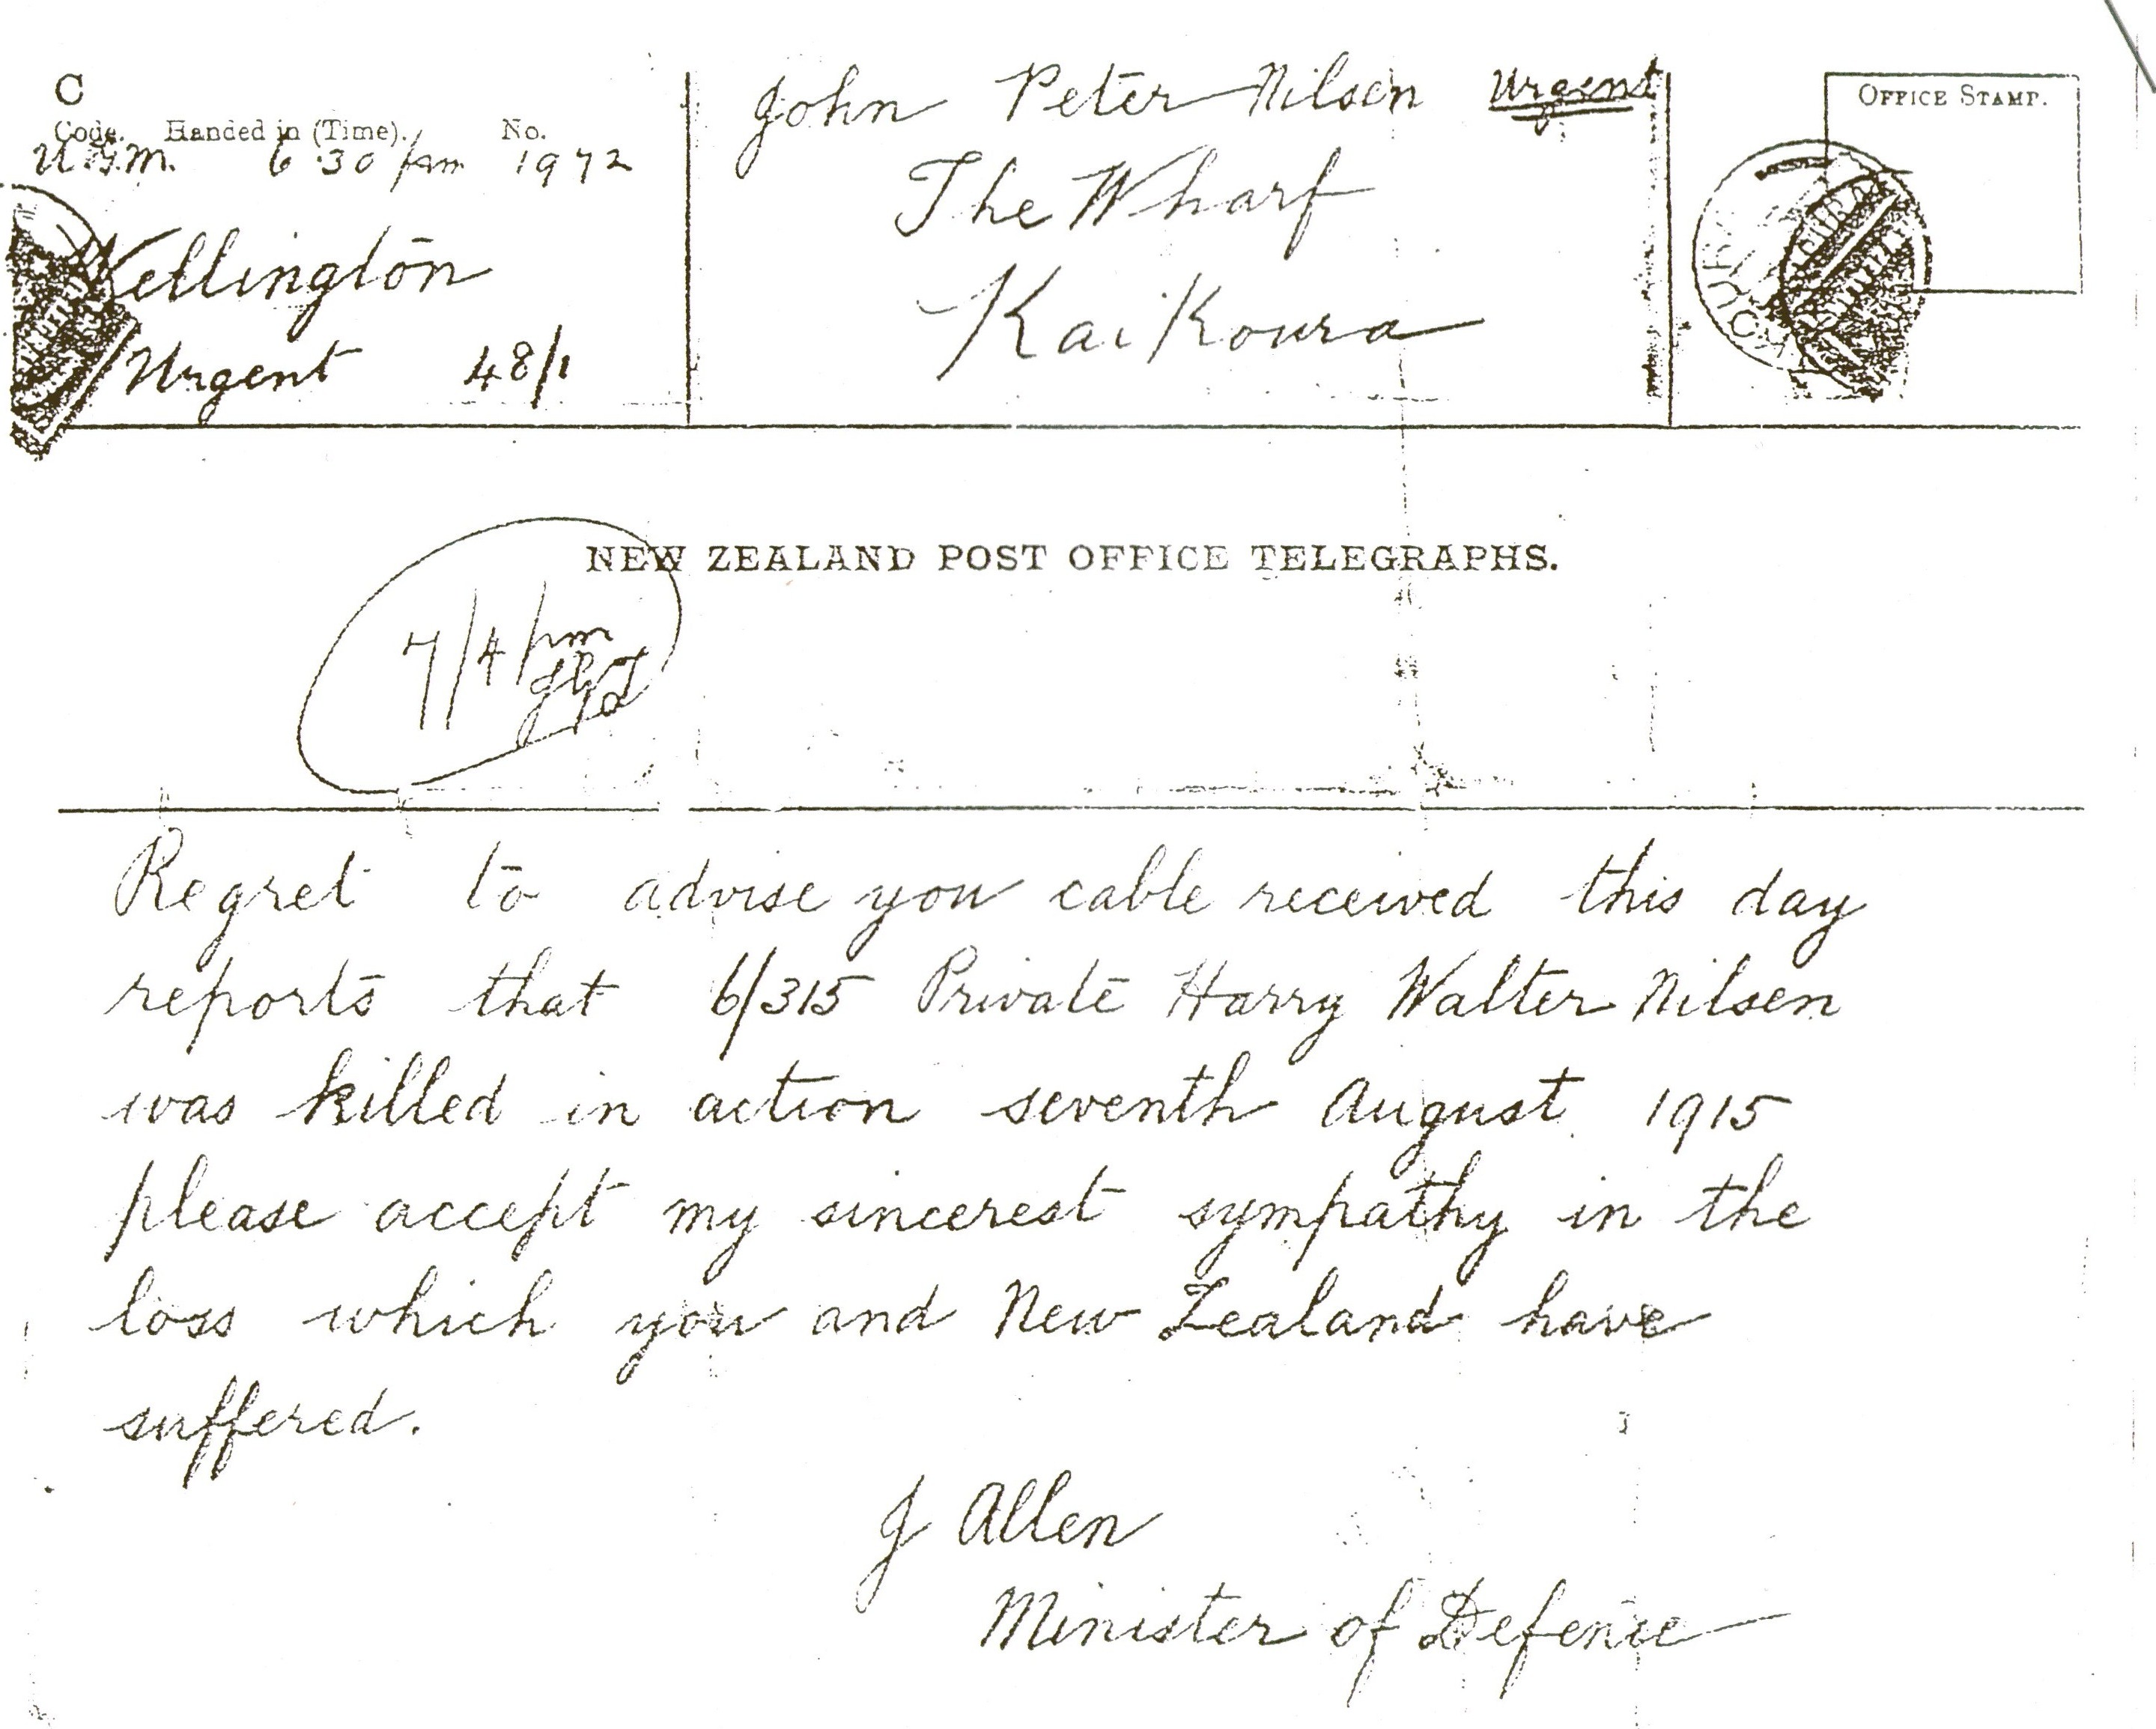 C
Code. Handed in (Time). No.
6.30 pm 1972
Wellington
Urgent 48/1
John Peter Nilsen Urgent
The Wharf
Kaikoura
OFFICE STAMP.
NEW ZEALAND POST OFFICE TELEGRAPHS.
7/4 pm
Regret to advise you cable received this day
reports that 6/315 Private Harry Walter Nilsen
was killed in action seventh August 1915
please accept my sincerest sympathy in the
loss which you and New Zealand have
suffered.
J Allen
Minister of Defence